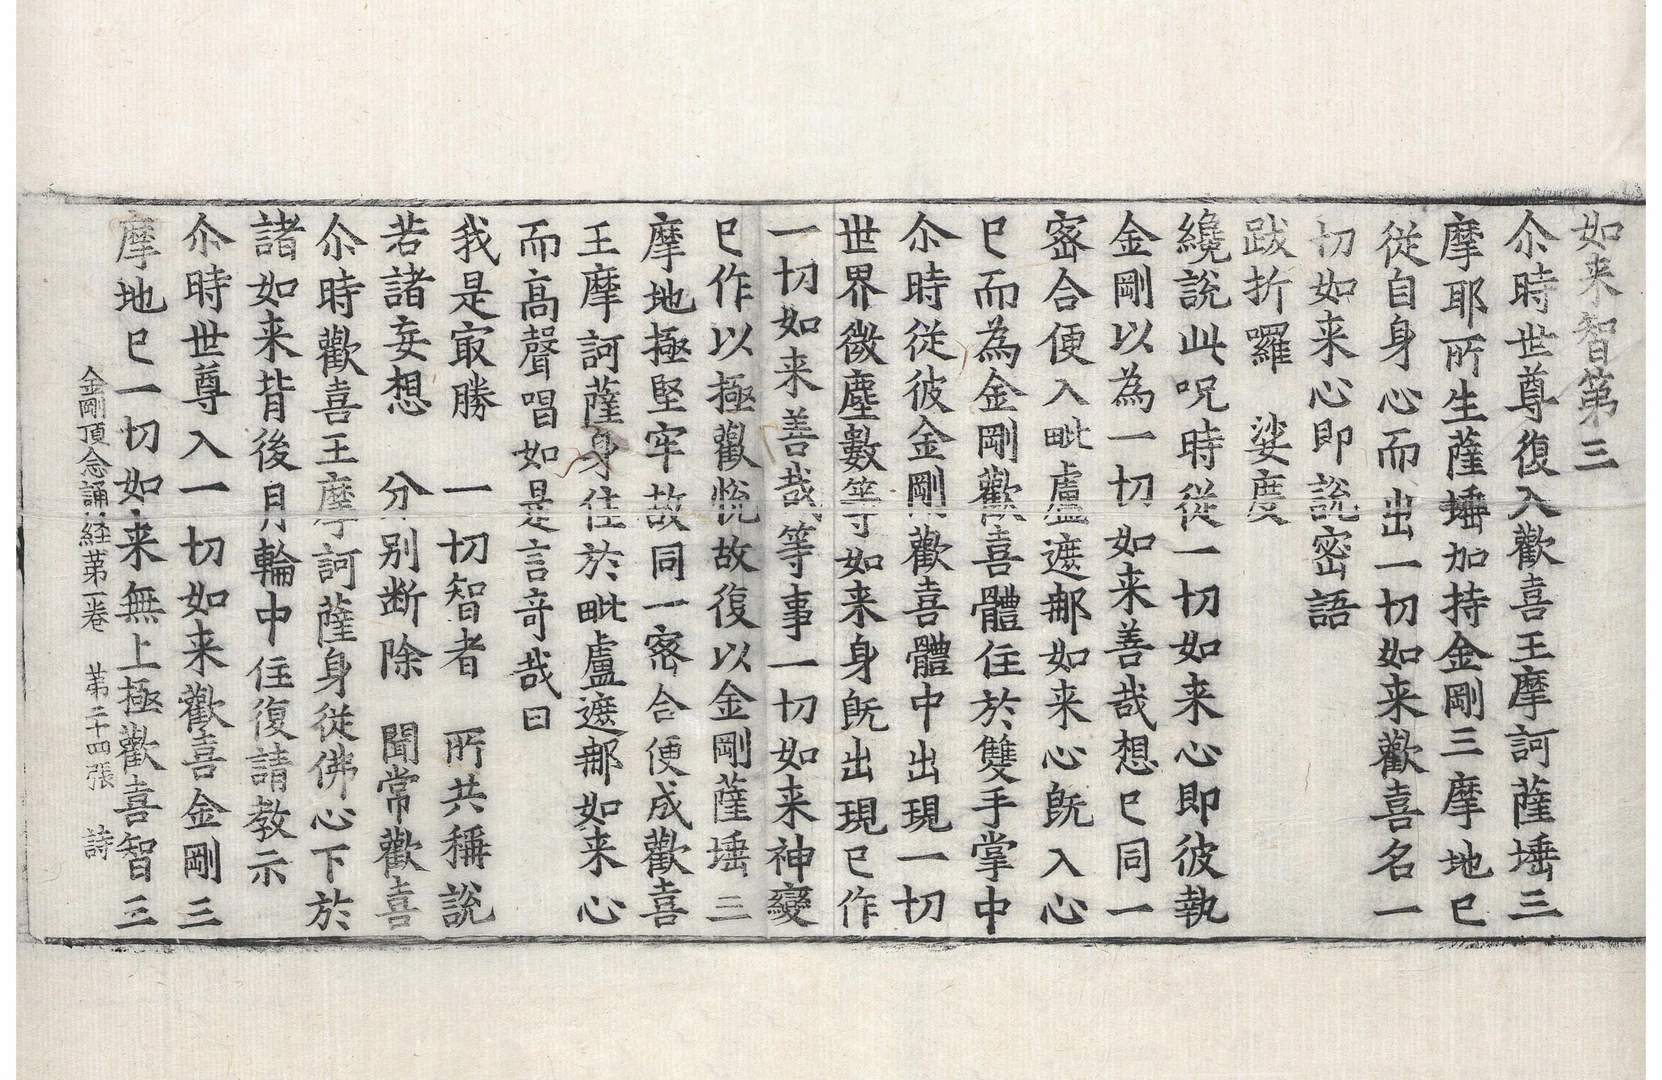 如来智第三
尒時世尊復入歡喜王摩訶薩埵三
摩耶所生薩埵加持金剛三摩地已
從自身心而出一切如来歡喜名一
切如来心即說密語
跋折囉　娑度
纔說此呪時從一切如来心即彼執
金剛以為一切如来善哉想已同一
密合便入毗盧遮那如来心既入心
已而為金剛歡喜體住於雙手掌中
尒時從彼金剛歡喜體中出現一切
世界微塵數等如来身既出現已作
一切如来善哉等事一切如来神變
已作以極歡悅故復以金剛薩埵三
摩地極堅牢故同一密合便成歡喜
王摩訶薩身住於毗盧遮那如来心
而高聲唱如是言竒哉曰
我是㝡勝　一切智者　所共稱說
若諸妄想　分別断除　聞常歡喜
尒時歡喜王摩訶薩身從佛心下於
諸如来背後月輪中住復請教示
尒時世尊入一切如来歡喜金剛三
摩地已一切如来無上極歡喜智三
金剛頂念誦経第一卷　第二十四張　詩